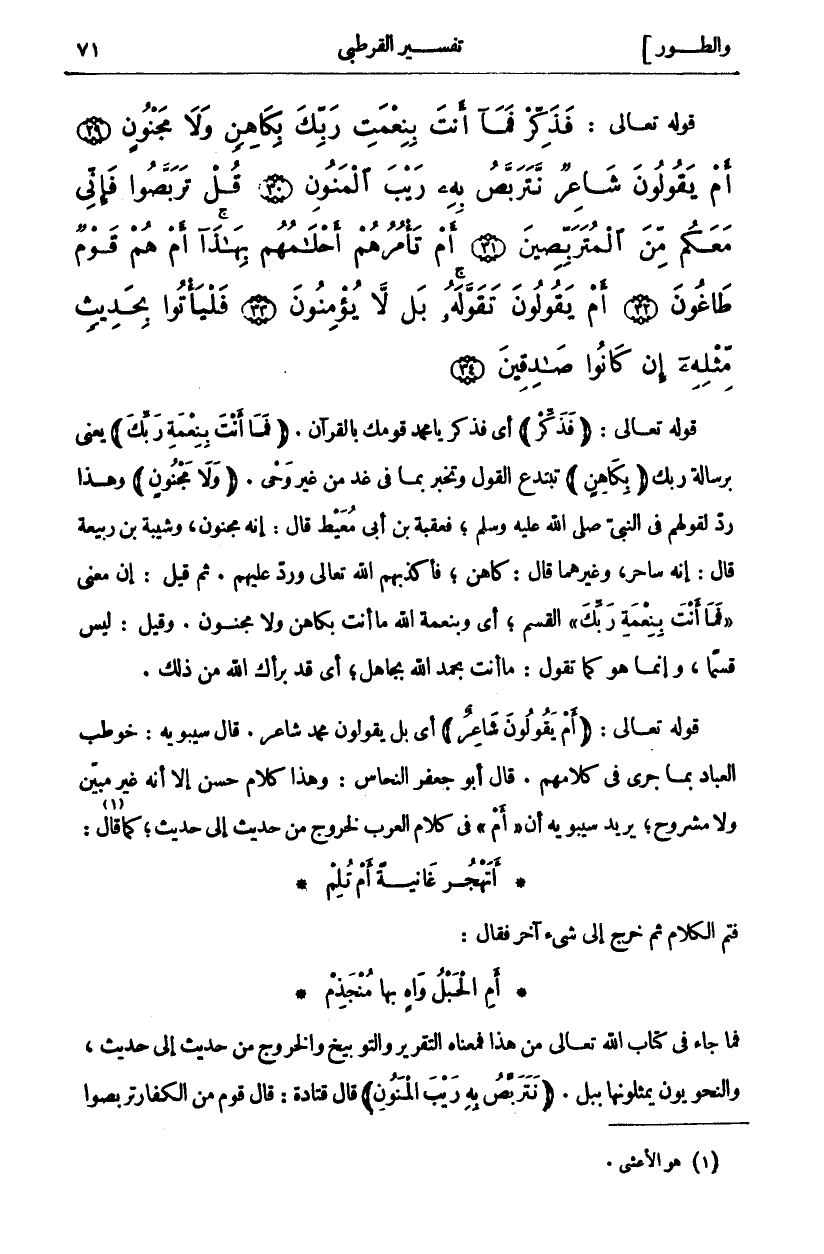 والطـــور ] تفســـير القرطبي ٧١
قوله تعـالى : فَذَكِّرْ فَمَآ أَنتَ بِنِعْمَتِ رَبِّكَ بِكَاهِنٍ وَلَا مَجْنُونٍ ۝٢٩
أَمْ يَقُولُونَ شَاعِرٌ نَّتَرَبَّصُ بِهِۦ رَيْبَ ٱلْمَنُونِ ۝٣٠ قُلْ تَرَبَّصُوا فَإِنِّى
مَعَكُم مِّنَ ٱلْمُتَرَبِّصِينَ ۝٣١ أَمْ تَأْمُرُهُمْ أَحْلَـٰمُهُم بِهَـٰذَآ ۚ أَمْ هُمْ قَوْمٌ
طَاغُونَ ۝٣٢ أَمْ يَقُولُونَ تَقَوَّلَهُۥ ۚ بَل لَّا يُؤْمِنُونَ ۝٣٣ فَلْيَأْتُوا بِحَدِيثٍ
مِّثْلِهِۦٓ إِن كَانُوا صَـٰدِقِينَ ۝٣٤
قوله تعـالى : ﴿ فَذَكِّرْ ﴾ أى فذكر يامحمد قومك بالقرآن . ﴿ فَمَا أَنْتَ بِنِعْمَةِ رَبِّكَ ﴾ يعنى
برسالة ربك ﴿ بِكَاهِنٍ ﴾ تبتدع القول وتخبر بمـا فى غد من غير وَحْى . ﴿ وَلَا مَجْنُونٍ ﴾ وهـذا
ردّ لقولهم فى النبىّ صلى الله عليه وسلم ؛ فعقبة بن أبى مُعَيْط قال : إنه مجنون، وشيبة بن ربيعة
قال : إنه ساحر، وغيرهما قال : كاهن ؛ فأكذبهم الله تعالى وردّ عليهم . ثم قيل : إن معنى
«فَمَا أَنْتَ بِنِعْمَةِ رَبِّكَ» القسم ؛ أى وبنعمة الله ماأنت بكاهن ولا مجنـون . وقيل : ليس
قسمًا ، وإنمـا هو كما تقول : ماأنت بحمد الله بجاهل؛ أى قد برأك الله من ذلك .
قوله تعـالى : ﴿ أَمْ يَقُولُونَ شَاعِرٌ ﴾ أى بل يقولون محمد شاعر . قال سيبويه : خوطب
العباد بمـا جرى فى كلامهم . قال أبو جعفر النحاس : وهذا كلام حسن إلا أنه غير مبيّن
ولا مشروح؛ يريد سيبويه أن «أَمْ» فى كلام العرب لخروج من حديث إلى حديث؛ كماقال (١) :
* أَتَهْجُـر غَانيـةً أَمْ تُلِمْ *
فتم الكلام ثم خرج إلى شىء آخر فقال :
* أَمِ الْحَبْلُ وَاهٍ بها مُنْجَذِمْ *
فما جاء فى كتاب الله تعـالى من هذا فمعناه التقرير والتوبيخ والخروج من حديث إلى حديث ،
والنحويون يمثلونها ببل . ﴿ نَتَرَبَّصُ بِهِ رَيْبَ الْمَنُونِ ﴾ قال قتادة : قال قوم من الكفارتربصوا
(١) هو الأعشى .